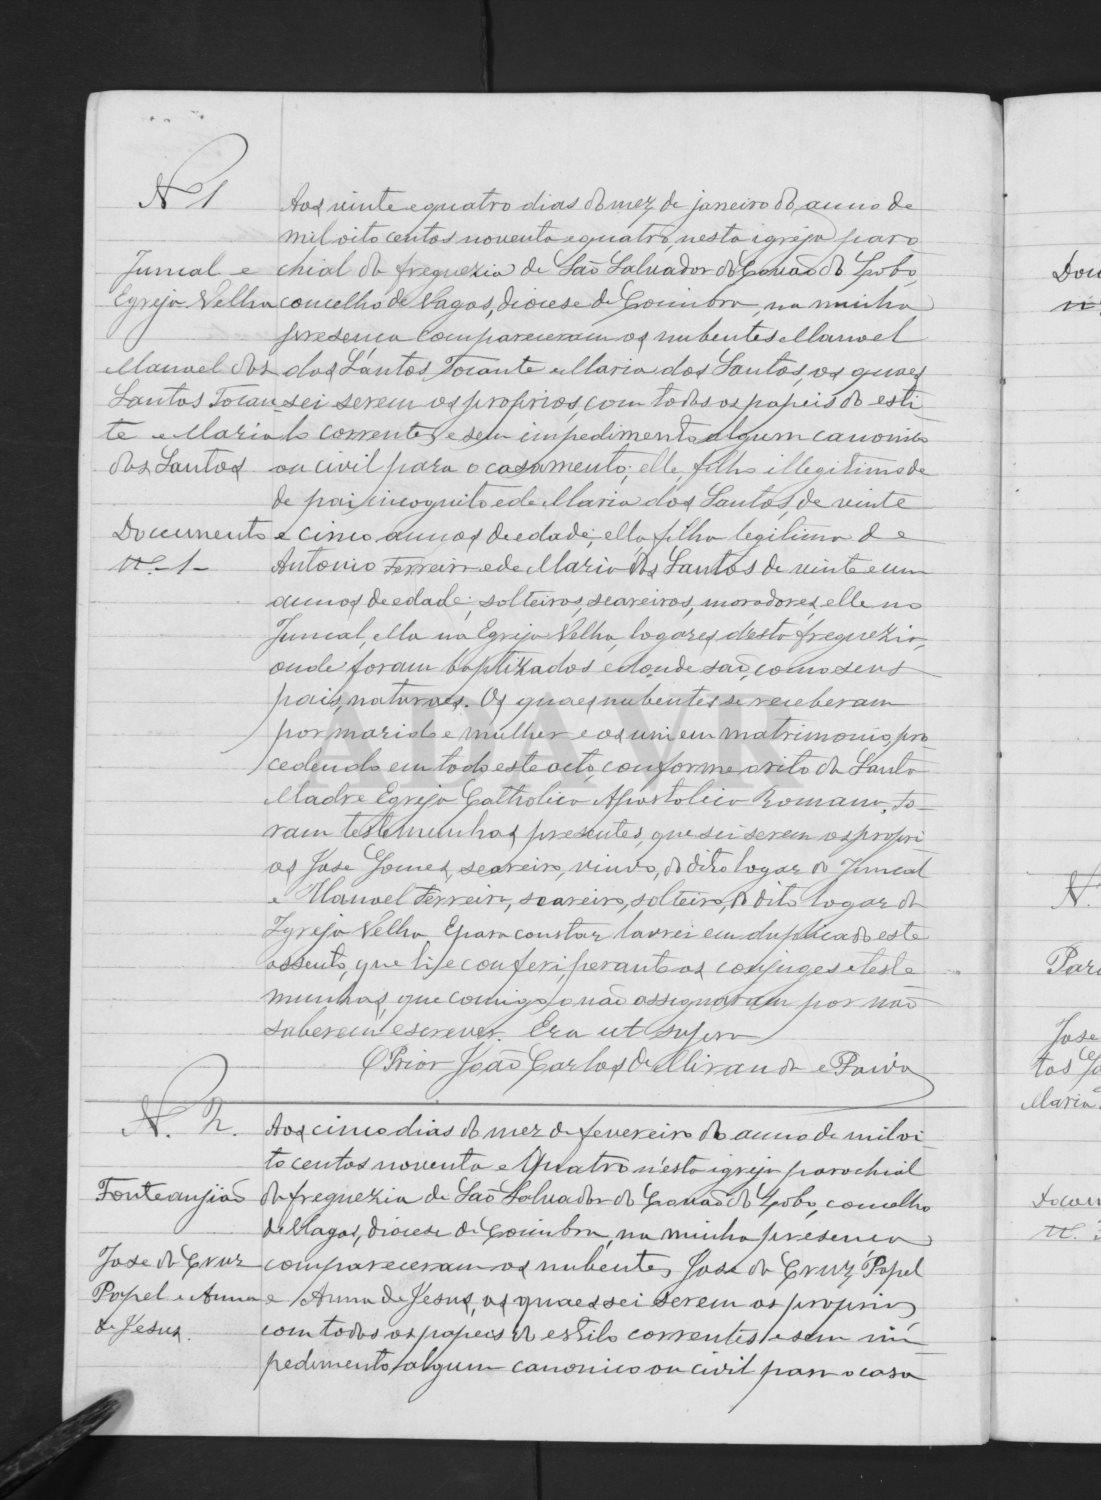 Nº 1
Juncal e
Egreja Velha
Manoel dos
Santos Tocan-
te e Maria
dos Santos
Documento
nº - 1 -
Aos vinte e quatro dias do mez de janeiro do anno de
mil oito centos noventa e quatro, nesta igreja paro
chial da freguezia de São Salvador do Covão do Lobo,
concelho de Vagos, diocese de Coimbra, na minha
presença compareceram os nubentes Manoel
dos Santos Tocante e Maria dos Santos, os quaes
sei serem os proprios, com todos os papeis do esti
lo correntes e sem impedimento algum canonico
ou civil para o casamento; elle, filho illegitimo de
de pai incognito e de Maria dos Santos, de vinte
e cinco annos de edade; ella filha legitima de
Antonio Ferreira e de Maria dos Santos de vinte e um
annos de edade; solteiros, seareiros, moradores, elle no
Juncal, ella na Egreja Velha, logares desta freguezia,
onde foram baptizados e donde são, como seus
pais, naturaes. Os quaes nubentes se receberam
por marido e mulher e os uni em matrimonio, pro
cedendo em todo este acto, conforme o rito da Santa
Madre Egreja Catholica Apostolica Romana, Fo-
ram testemunhas presentes, que sei serem os propri
os Jose Gomes, seareiro, viuvo, do dito logar do Juncal
e Manoel Ferreira, seareiro, solteiro, do dito logar da
Igreja Velha E para constar lavrei em duplicado este
assento, que li e conferi, perante os conjuges e teste
munhas, que comigo o não assignaram por não
saberem escrever. Era ut supra
O Prior João Carlos de Miranda e Paiva
N. 2.
Fonteanjião
Jose da Cruz
Papel e Anna
de Jesus.
Aos cinco dias do mez de fevereiro do anno de mil oi-
to centos noventa e quatro n'esta igreja parochial
da freguezia de São Salvador do Covão do Lobo, concelho
de Vagos, diocese de Coimbra, na minha presença
compareceram os nubentes, Jose da Cruz Papel
e Anna de Jesus, os quaes sei serem os proprios
com todos os papeis do estilo correntes e sem im
pedimento algum canonico ou civil para o casa
Dou
nº
N.
Para
Jose
tos
Maria
Docu
nº
ADAVR